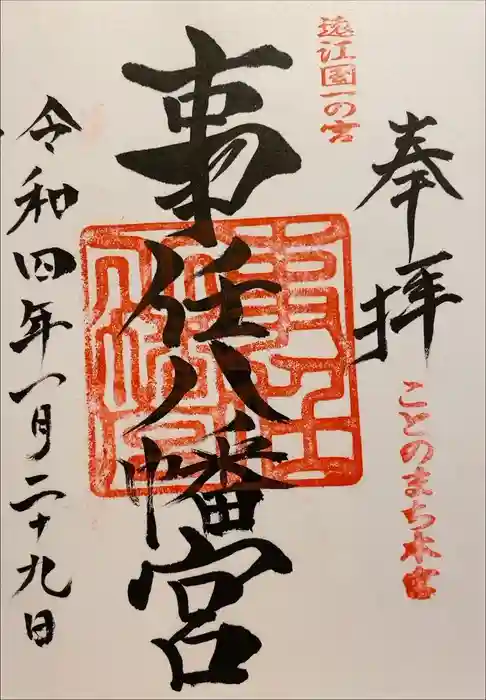 奉拝
遠江國一の宮
ことのまち本宮
事任八幡宮
令和四年一月二十九日